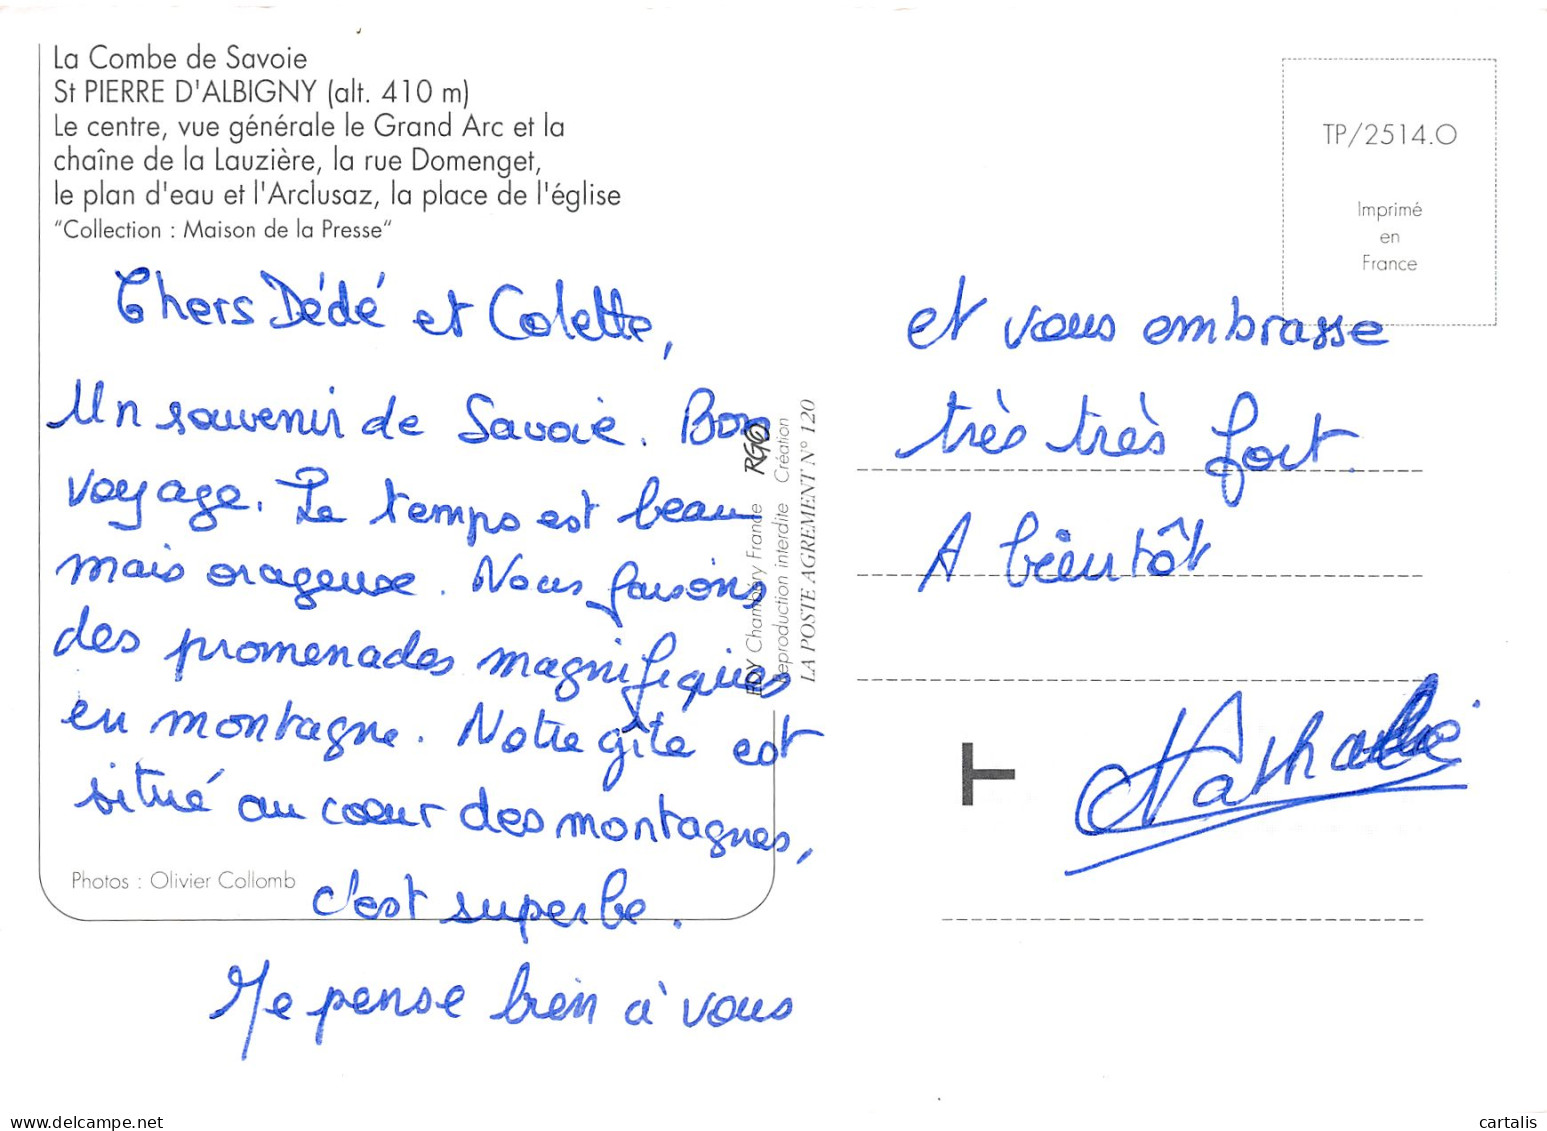 La Combe de Savoie
St PIERRE D'ALBIGNY (alt. 410 m)
Le centre, vue générale le Grand Arc et la
chaîne de la Lauzière, la rue Domenget,
le plan d'eau et l'Arclusaz, la place de l'église
"Collection : Maison de la Presse"
Chers Dédé et Colette,
Un souvenir de Savoie. Bon
voyage. Le temps est beau
mais orageuse. Nous faisons
des promenades magnifiques
en montagne. Notre gîte est
situé au cœur des montagnes,
c'est superbe.
Je pense bien à vous
Photos : Olivier Collomb
EDY Chambéry France RGO
Reproduction interdite Création
LA POSTE AGREMENT N° 120
TP/2514.O
Imprimé
en
France
et vous embrasse
très très fort.
A bientôt
Nathalie
T
delcampe.net
cartalis